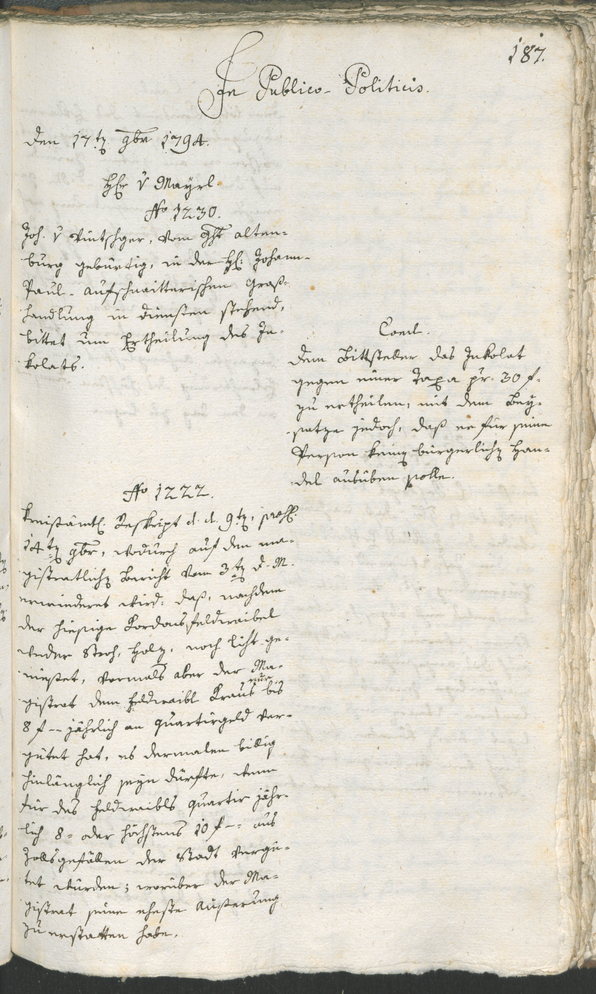 187.
In Publico-Politicis.
Den 17tn 9br 1794.
H: v Mayrl.
No 1230.
Joh. v Vintschger, vom Ght alten-
burg gebürtig, in der H: Johann-
Paul- aufschnaitterischen Groß-
handlung in diensten stehend,
bittet um Ertheilung des In-
kolats.
Concl.
Dem Bittsteller das Inkolat
gegen einer Taxa pr. 30 f.
zu ertheilen, mit dem Bey-
satze jedoch, daß er für seine
Person keinen bürgerlichen Han-
del ausüben solle.
No 1222.
Kreisämtl. Reskript d. d. 9tn, präs.
14tn 9br, wodurch auf den ma-
gistratlichen Bericht vom 3tn d. M.
erwiederet wird: daß, nachdem
der hiesige Kordonsfeldwaibel
weder Stroh, Holz, noch licht ge-
niesset, vormals aber der Ma-
gistrat dem feldwaibl Kraus nur bis
8 f -- jährlich an Quartirgeld ver-
gütet hat, es dermalen billig
hinlänglich seyn dürfte, wenn
für des Feldwaibls Quartir jähr-
lich 8- oder höchstens 10 f -- aus
Zollsgefällen der Stadt vergü-
tet würden; worüber der Ma-
gistrat seine eheste Äusserung
zu erstatten habe.